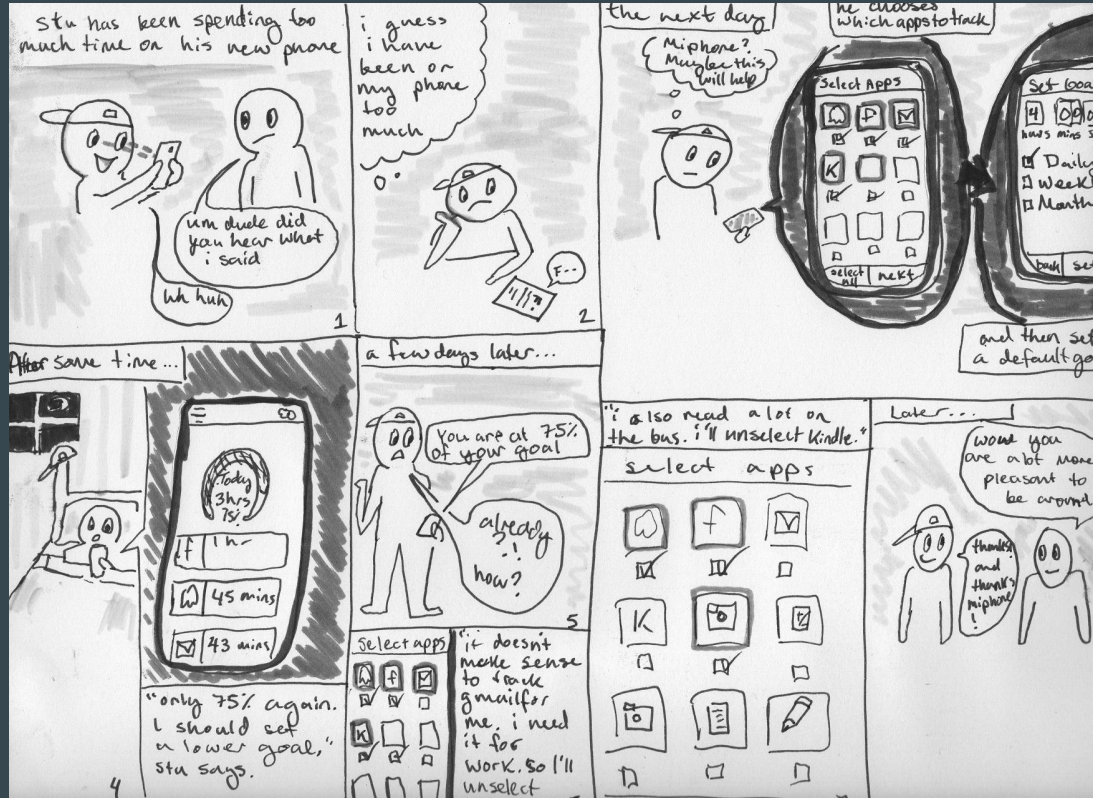 Stu has been spending too
much time on his new phone
um dude did
you hear what
i said
uh huh
1
i guess
i have
been on
my phone
too
much
F--
2
the next day
Miphone?
Maybe this
will help
he chooses
which apps to track
Select Apps
f
K
select
all
next
Set Goa
4
hours mins s
Daily
Week
Month
back
set
and then set
a default go
After some time...
Today
3hrs
75%
f
1 hr
45 mins
43 mins
"only 75% again.
I should set
a lower goal,"
stu says.
4
a few days later...
You are at 75%
of your goal
already
?!
how?
5
Select apps
f
K
"it doesn't
make sense
to track
gmail for
me. i need
it for
work. so I'll
unselect
"i also read a lot on
the bus. i'll unselect Kindle."
select apps
f
K
Later...
wow you
are a lot more
pleasant to
be around
thanks!
and
thanks
miphone
!